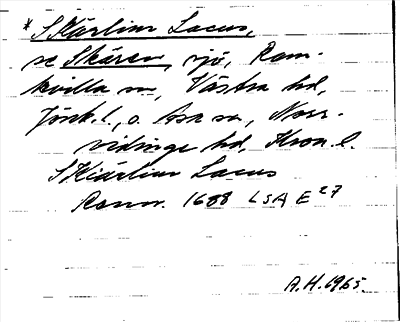 * Skärlim Lacus,
se Skären, sjö, Ram-
kvilla sn, Västra hd,
Jönk. l., o. Asa sn, Norr-
vidinge hd, Kron. l.
Skiärlim Lacus
Rannr. 1688 LSA E 27
A.H. 1965.